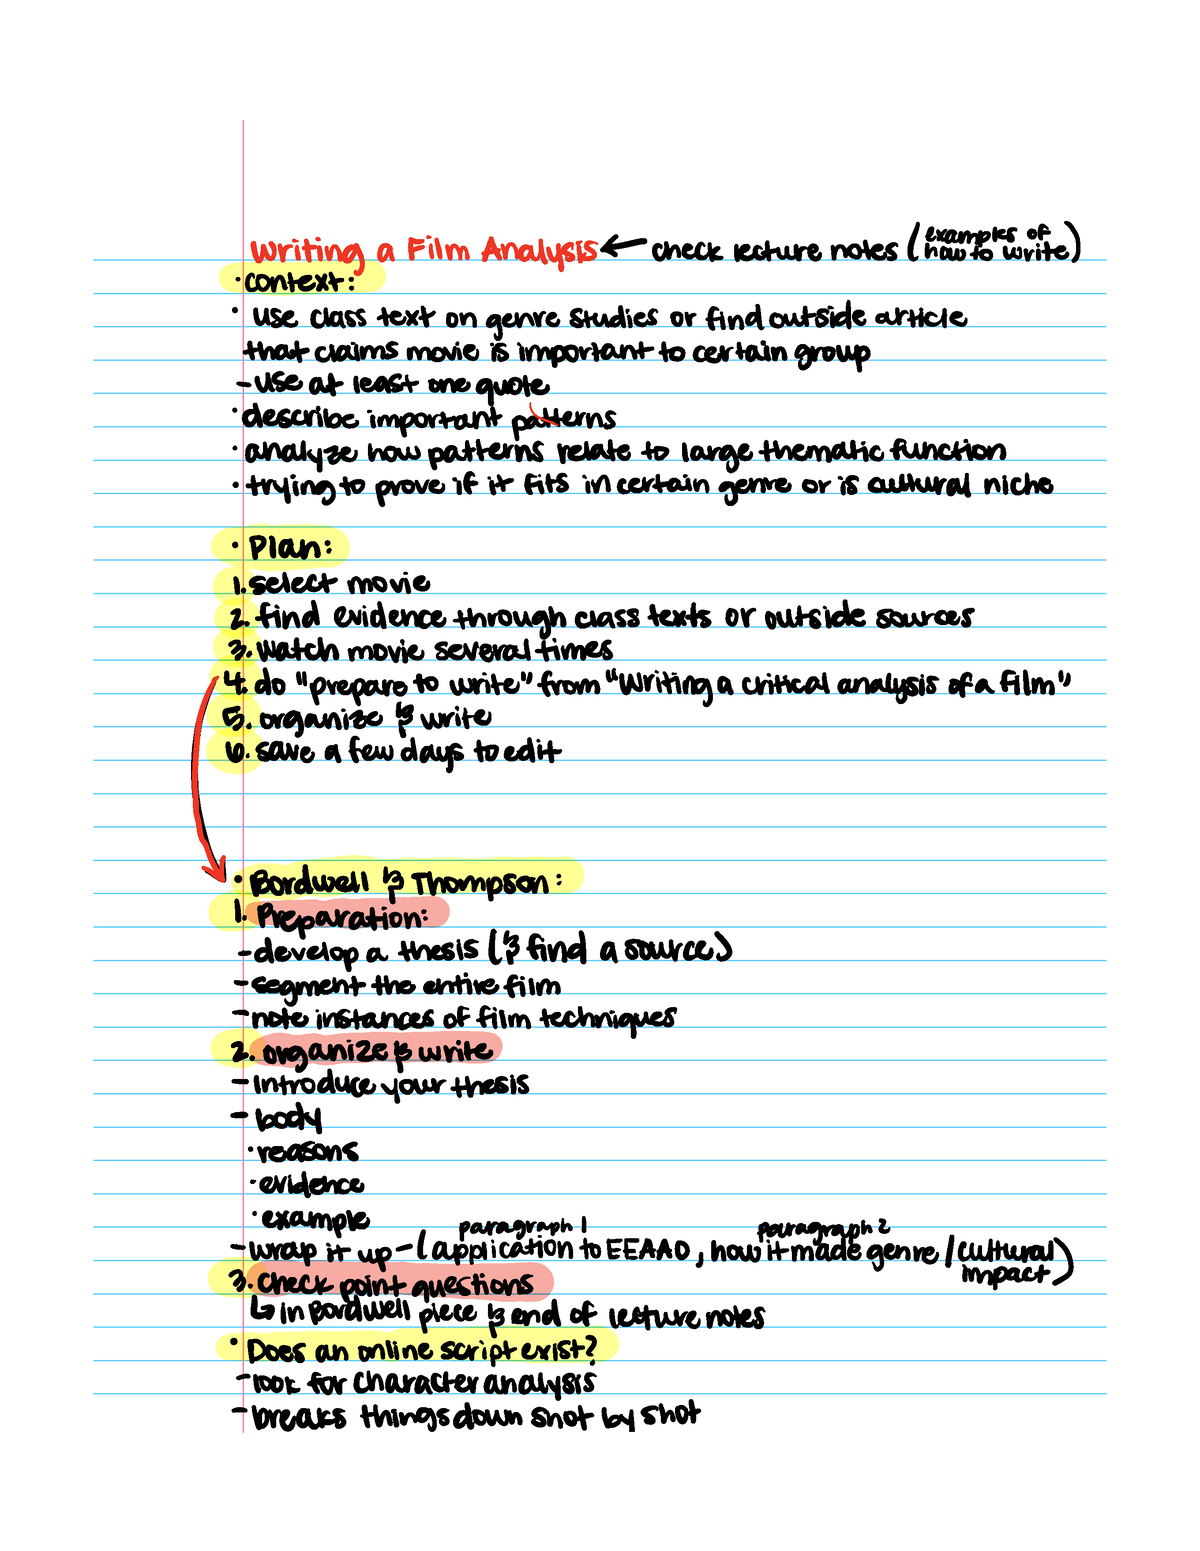 Writing a Film Analysis ← check lecture notes (examples of how to write)
• context:
• use class text on genre studies or find outside article
that claims movie is important to certain group
- use at least one quote
• describe important patterns
• analyze how patterns relate to large thematic function
• trying to prove if it fits in certain genre or is cultural niche
• Plan:
1. select movie
2. find evidence through class texts or outside sources
3. watch movie several times
4. do "prepare to write" from "Writing a critical analysis of a film"
5. organize & write
6. save a few days to edit
• Bordwell & Thompson:
1. Preparation:
- develop a thesis (& find a source)
- segment the entire film
- note instances of film techniques
2. organize & write
- introduce your thesis
- body
• reasons
• evidence
• example
paragraph 1 paragraph 2
- wrap it up - (application to EEAAO, how it made genre / cultural impact)
3. check point questions
↳ in Bordwell piece & end of lecture notes
• Does an online script exist?
- look for character analysis
- breaks things down shot by shot